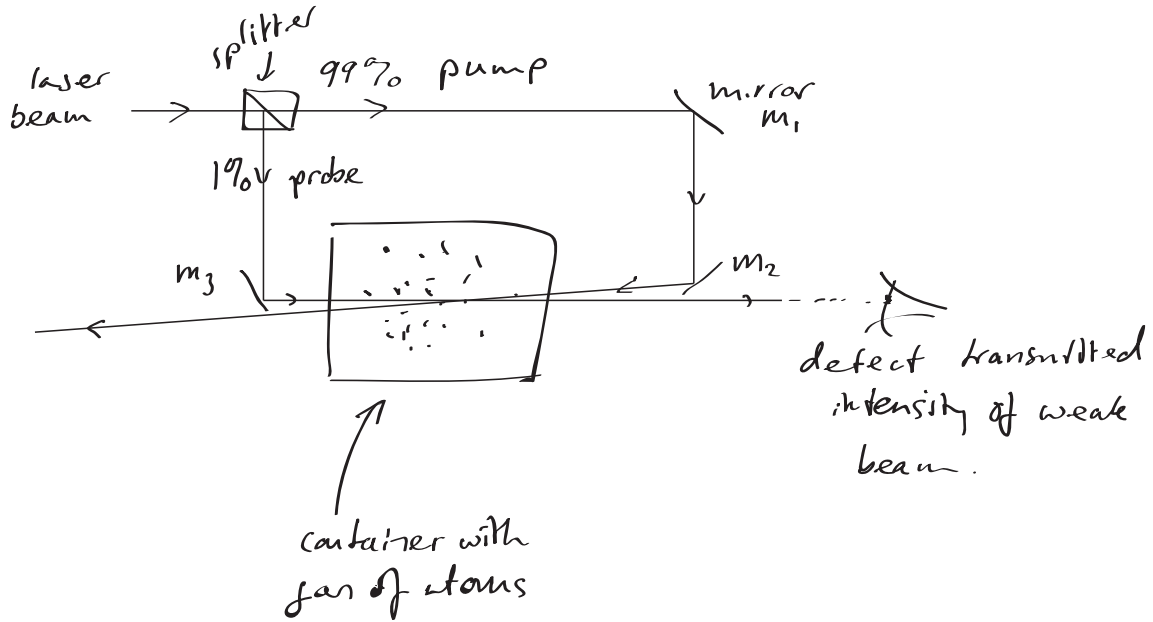 splitter
laser
beam
99% pump
mirror
m1
1% probe
m3
m2
detect transmitted
intensity of weak
beam.
container with
gas of atoms